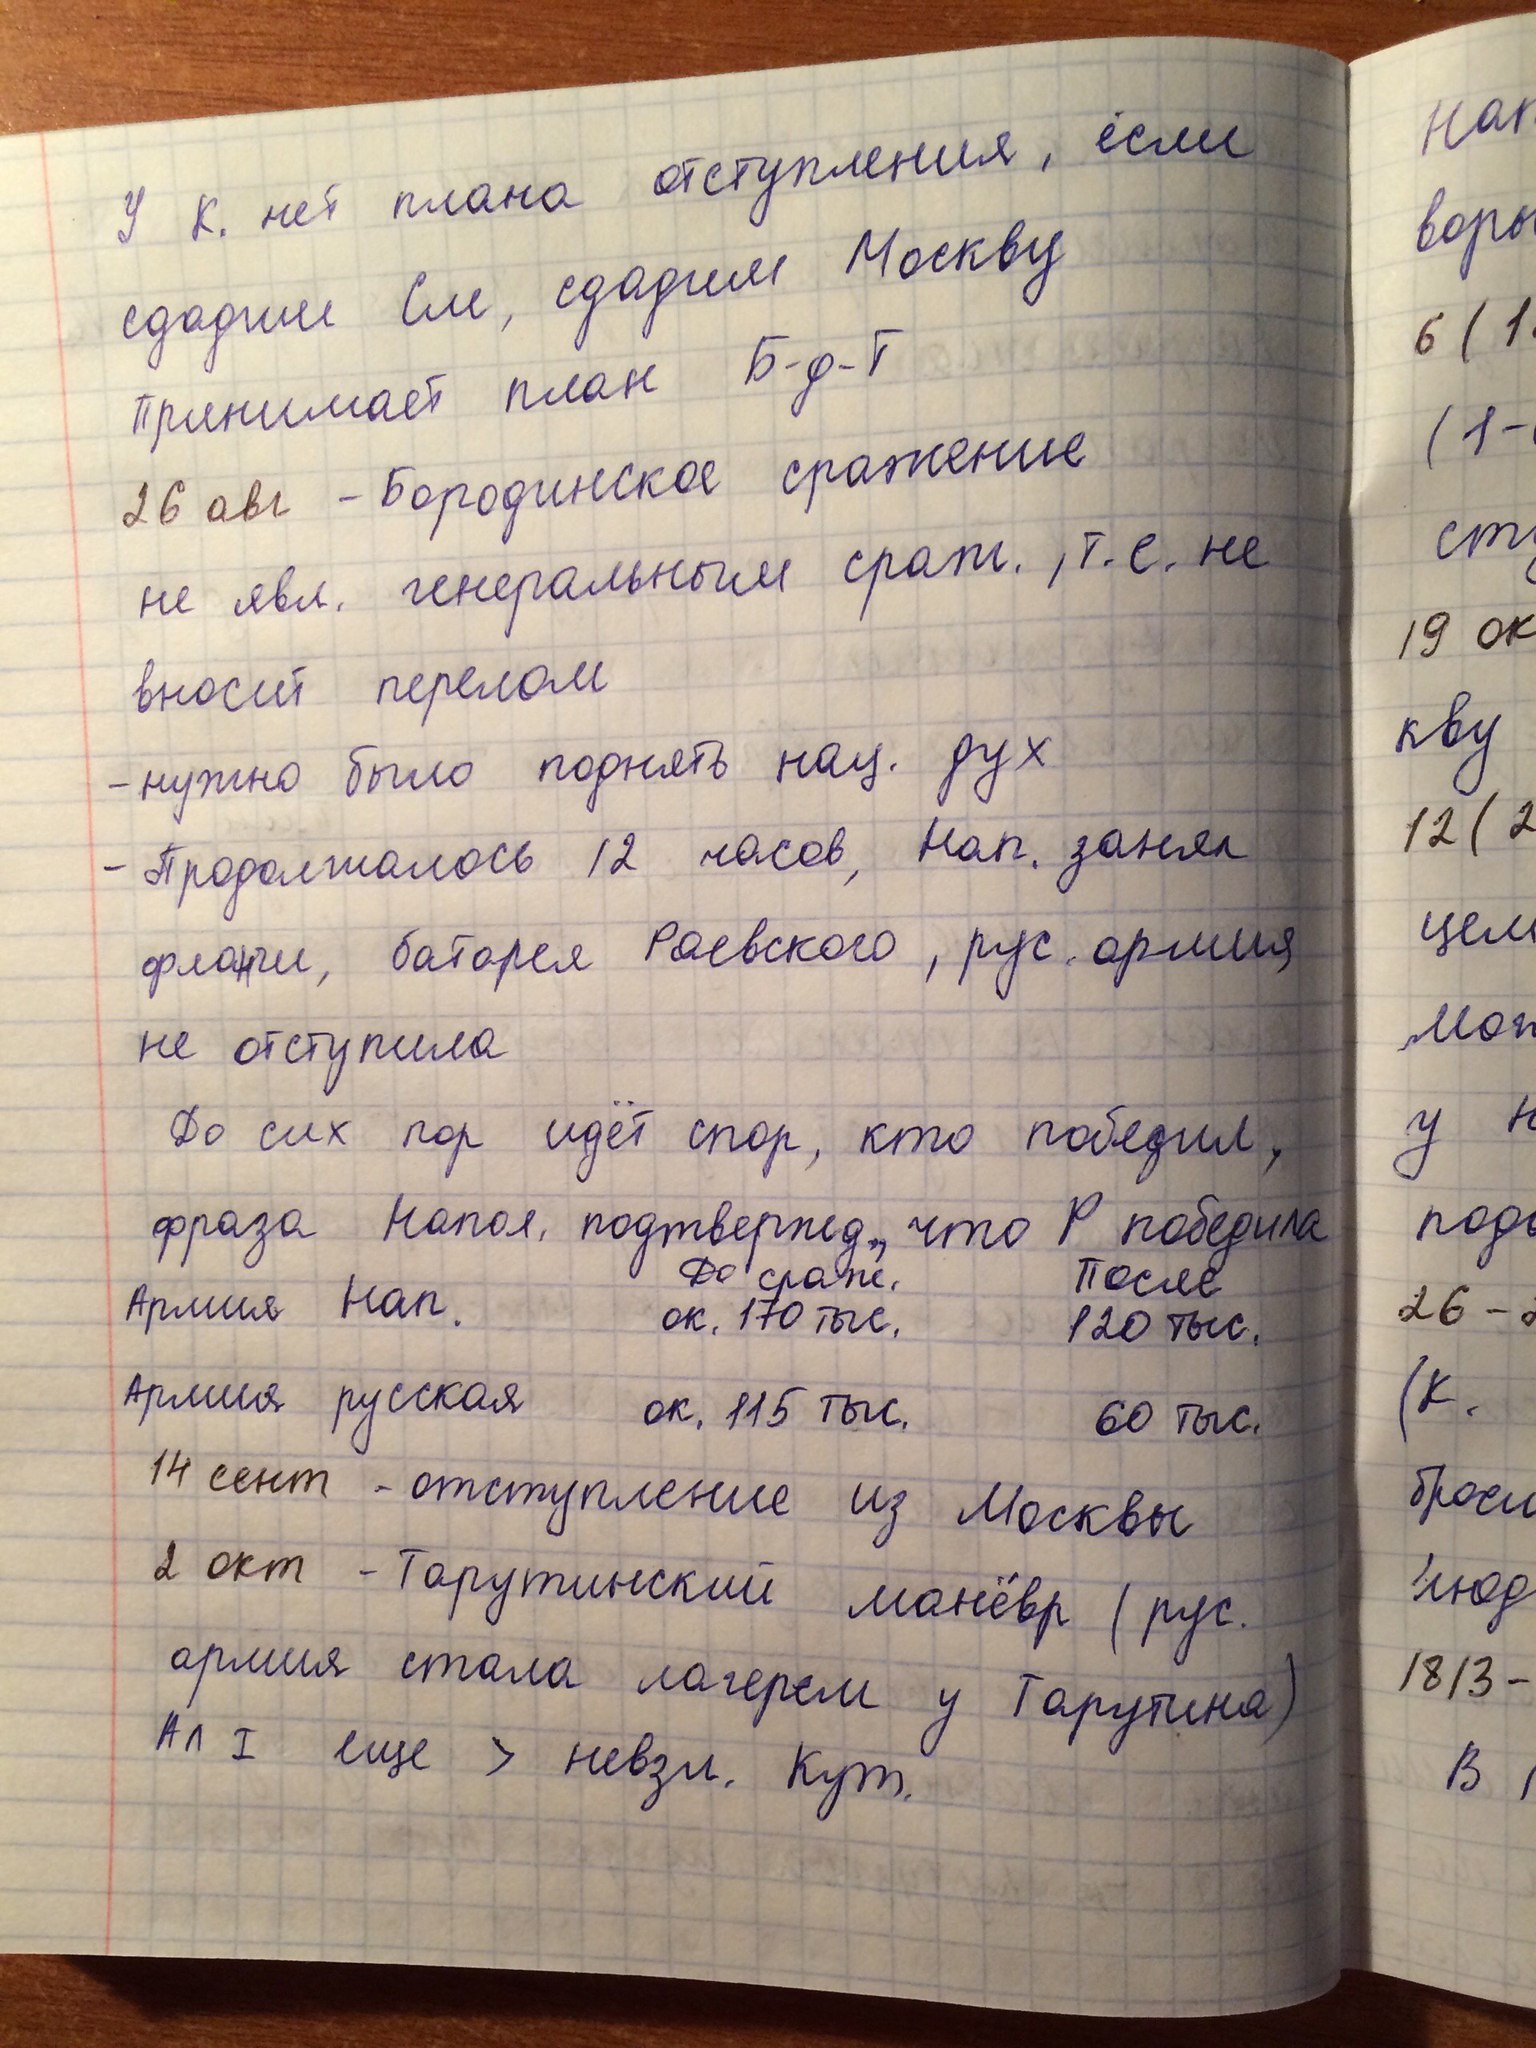 У К. нет плана отступления, если
сдадим См, сдадим Москву
Принимает план Б-д-Т
26 авг - Бородинское сражение
не явл. генеральным сраж., т.е. не
вносит перелом
- нужно было поднять нац. дух
- Продолжалось 12 часов, Нап. занял
флаги, батарея Раевского, рус. армия
не отступила
До сих пор идёт спор, кто победил,
фраза Напол. подтвержд., что Р победила
До сраж. После
Армия Нап. ок. 170 тыс. 120 тыс.
Армия русская ок. 115 тыс. 60 тыс.
14 сент - отступление из Москвы
2 окт - Тарутинский манёвр (рус.
армия стала лагерем у Тарутина)
Ал I еще > невзл. Кут.
Нап
воры
6 (1
(1-
сту
19 ок
кву
12 (2
цем
Мож
у Н
подо
26 - 2
(К.
броси
люд
1813 -
В